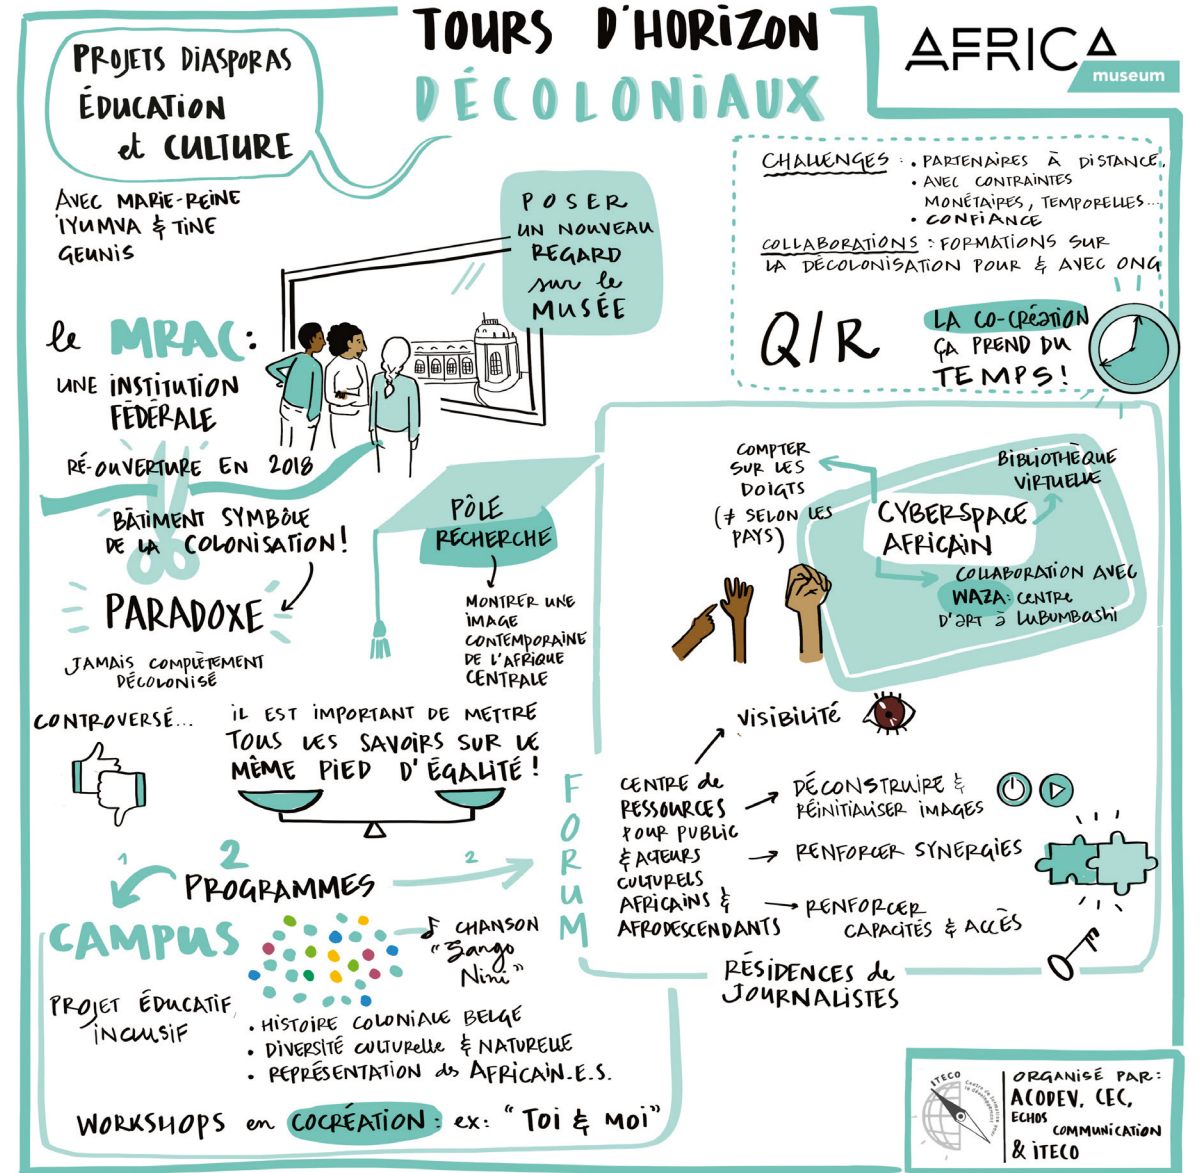 TOURS D'HORIZON
DÉCOLONIAUX
AFRICA
museum
PROJETS DIASPORAS
ÉDUCATION
et CULTURE
AVEC MARIE-REINE
IYUMVA & TINE
GEUNIS
POSER
UN NOUVEAU
REGARD
sur le
MUSÉE
le MRAC:
UNE INSTITUTION
FÉDÉRALE
RÉ-OUVERTURE EN 2018
BÂTIMENT SYMBÔLE
DE LA COLONISATION!
PARADOXE
JAMAIS COMPLÈTEMENT
DÉCOLONISÉ
CONTROVERSÉ...
PÔLE
RECHERCHE
MONTRER UNE
IMAGE
CONTEMPORAINE
DE L'AFRIQUE
CENTRALE
IL EST IMPORTANT DE METTRE
TOUS LES SAVOIRS SUR LE
MÊME PIED D'ÉGALITÉ!
2
PROGRAMMES
1
2
CAMPUS
PROJET ÉDUCATIF
INCLUSIF
CHANSON
"Zango
Nini"
• HISTOIRE COLONIALE BELGE
• DIVERSITÉ CULTURELLE & NATURELLE
• REPRÉSENTATION ds AFRICAIN.E.S.
WORKSHOPS en COCRÉATION: ex: "TOI & MOI"
CHALLENGES: • PARTENAIRES À DISTANCE,
• AVEC CONTRAINTES
MONÉTAIRES, TEMPORELLES...
• CONFIANCE
COLLABORATIONS: FORMATIONS SUR
LA DÉCOLONISATION POUR & AVEC ONG
Q/R
LA CO-CRÉATION
ÇA PREND DU
TEMPS!
COMPTER
SUR LES
DOIGTS
(≠ SELON LES
PAYS)
CYBERSPACE
AFRICAIN
BIBLIOTHÈQUE
VIRTUELLE
COLLABORATION AVEC
WAZA: CENTRE
D'ART à LUBUMBASHI
FORUM
CENTRE de
RESSOURCES
POUR PUBLIC
& ACTEURS
CULTURELS
AFRICAINS &
AFRODESCENDANTS
VISIBILITÉ
DÉCONSTRUIRE &
RÉINITIALISER IMAGES
RENFORCER SYNERGIES
RENFORCER
CAPACITÉS & ACCÈS
RÉSIDENCES de
JOURNALISTES
ITECO
ORGANISÉ PAR:
ACODEV, CEC,
ECHOS
COMMUNICATION
& ITECO